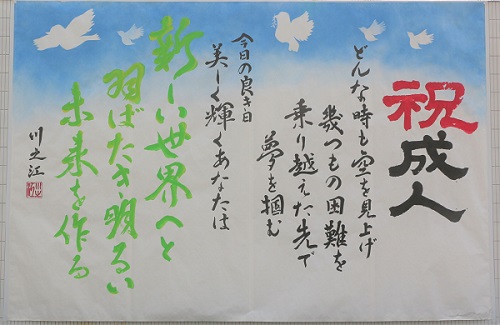 祝成人
どんな時も空を見上げ
幾つもの困難を
乗り越えた先で
夢を掴む
今日の良き日
美しく輝くあなたは
新しい世界へと
羽ばたき明るい
未来を作る
川之江